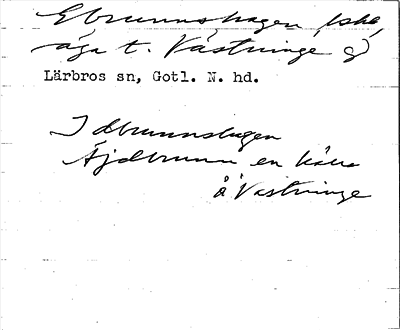 Elbrunnshagen, 
äga t. Västringe g
Lärbros sn, Gotl. N. hd.
I dbrunnshagen
Äjdbrunn en källa
å Västringe